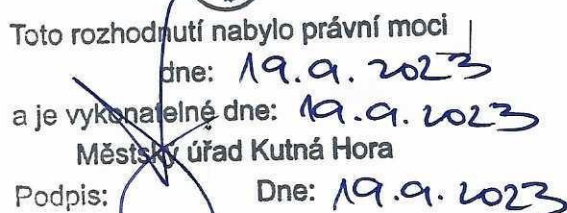 Toto rozhodnutí nabylo právní moci
dne: 19.9.2023
a je vykonatelné dne: 19.9.2023
Městský úřad Kutná Hora
Podpis: Dne: 19.9.2023